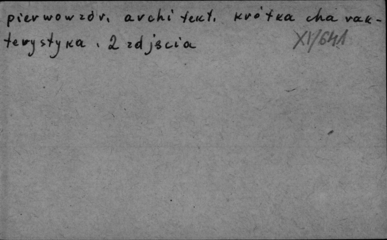 pierwowzór, architekt, krótka charak-
terystyka, 2 zdjęcia
XI/641